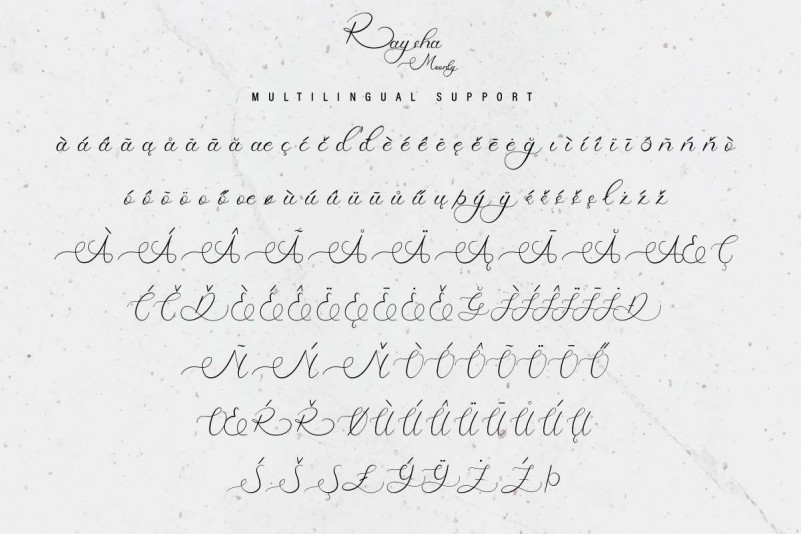 Raysha
Moonly
MULTILINGUAL SUPPORT
à á â ã ą å ä ā ă æ ç ć č ď đ è é ê ë ę ě ē ė ğ ı ì í î ï ī ð ñ ń ň ò
ó ô õ ö o ő œ ø ù ú û ü ū ů ű ų þ ý ÿ ŕ ř ś š ş ł ż ź ž
À Á Â Ã Å Ä Ą Ā Ă Æ Ç
Ć Č Ď È É Ê Ë Ę Ē Ė Ě Ğ Ì Í Î Ï Ī İ Đ
Ñ Ń Ň Ò Ó Ô Õ Ö Ō Ő
Œ Ŕ Ř Ø Ù Ú Û Ü Ū Ů Ű Ų
Ś Š Ş Ł Ý Ÿ Ż Ź Þ